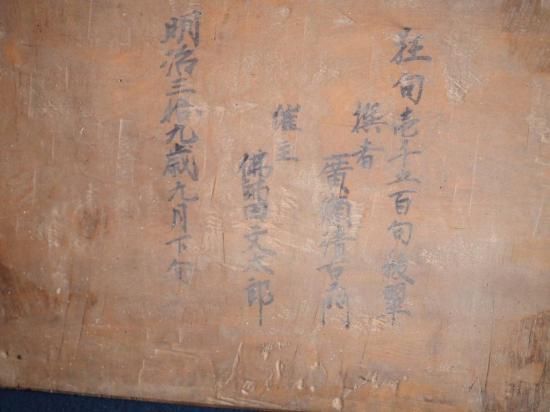 狂句壱千五百句抜翠
撰者
廣瀬
催主
佛師田文太郎
明治三拾九歳九月下旬